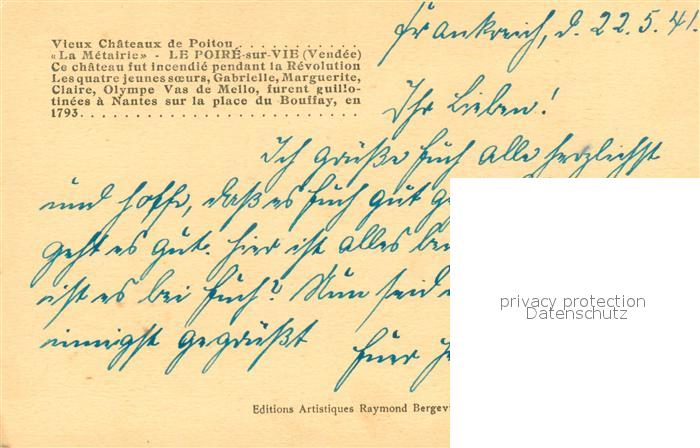 Vieux Châteaux de Poitou . . . . . . . . . . . .
«La Métairie» - LE POIRÉ-sur-VIE (Vendée)
Ce château fut incendié pendant la Révolution
Les quatre jeunes sœurs, Gabrielle, Marguerite,
Claire, Olympe Vas de Mello, furent guillo-
tinées à Nantes sur la place du Bouffay, en
1793. . . . . . . . . . . . . . . . . . . . . . . . . . .
Frankreich, d. 22.5.41.
Ihr Lieben!
Ich grüße Euch alle herzlichst
und hoffe, daß es Euch gut
geht es gut. Hier ist alles
ist es bei Euch? Nun seid
innigst gegrüßt Euer
privacy protection
Datenschutz
Editions Artistiques Raymond Bergev